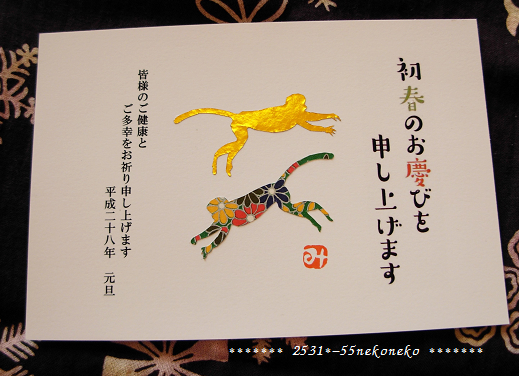 初春のお慶びを
申し上げます
皆様のご健康と
ご多幸をお祈り申し上げます
平成二十八年 元旦
み
******* 2531*-55nekoneko *******